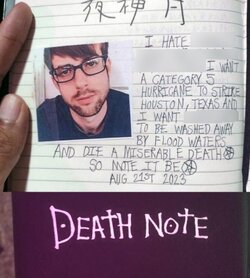 夜神月
I HATE
I WANT
A CATEGORY 5
HURRICANE TO STRIKE
HOUSTON, TEXAS AND
I WANT
TO BE WASHED AWAY
BY FLOOD WATERS
AND DIE A MISERABLE DEATH
SO MOTE IT BE
AUG 21ST 2023
DEATH NOTE